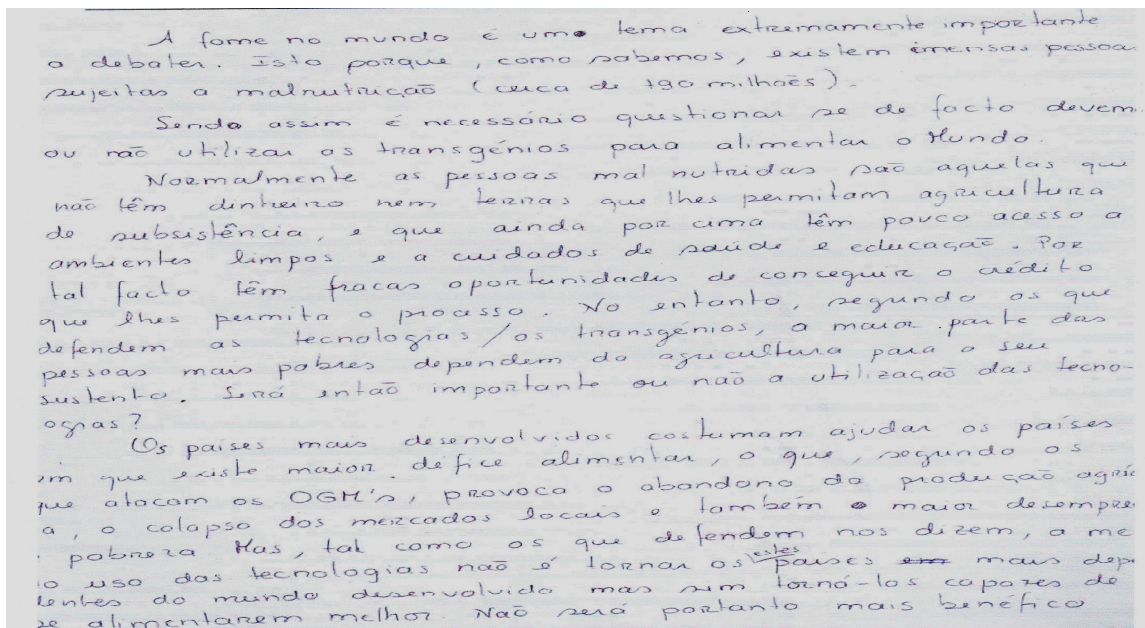 A fome no mundo é um tema extremamente importante
a debater. Isto porque, como sabemos, existem imensas pessoa
sujeitas a malnutrição (cerca de 790 milhões).
Sendo assim é necessário questionar se de facto devem
ou não utilizar os transgénios para alimentar o Mundo.
Normalmente as pessoas mal nutridas são aquelas que
não têm dinheiro nem terras que lhes permitam agricultura
de subsistência, e que ainda por cima têm pouco acesso a
ambientes limpos e a cuidados de saúde e educação. Por
tal facto têm fracas oportunidades de conceguir o crédito
que lhes permita o processo. No entanto, segundo os que
defendem as tecnologias/os transgénios, a maior parte das
pessoas mais pobres dependem da agricultura para o seu
sustento. Será então importante ou não a utilização das tecno-
ogias?
Os países mais desenvolvidos costumam ajudar os países
em que existe maior défice alimentar, o que, segundo os
que atacam os OGM's, provoca o abandono da produção agríc
a, o colapso dos mercados locais e também o maior desempre
pobreza Mas, tal como os que defendem nos dizem, a me
o uso das tecnologias não é tornar os estes países mais dep
dentes do mundo desenvolvido mas sim torná-los capazes de
se alimentarem melhor. Não será portanto mais benéfico